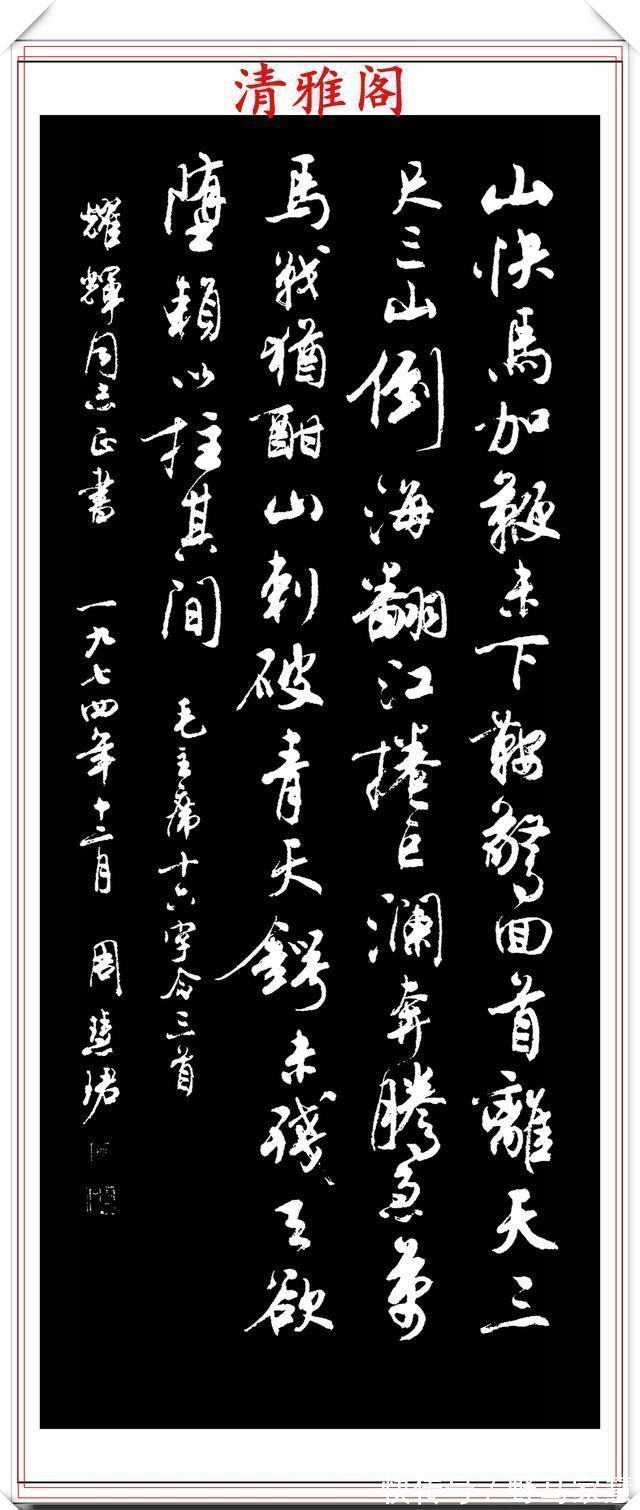 清雅阁
山快馬加鞭未下鞍驚回首離天三
尺三山倒海翻江捲巨瀾奔騰急萬
馬戰猶酣山刺破青天鍔未殘天欲
墮賴以拄其間 毛主席十六字令三首
耀輝同志正書 一九七四年十二月 周慧珺
快传号 /